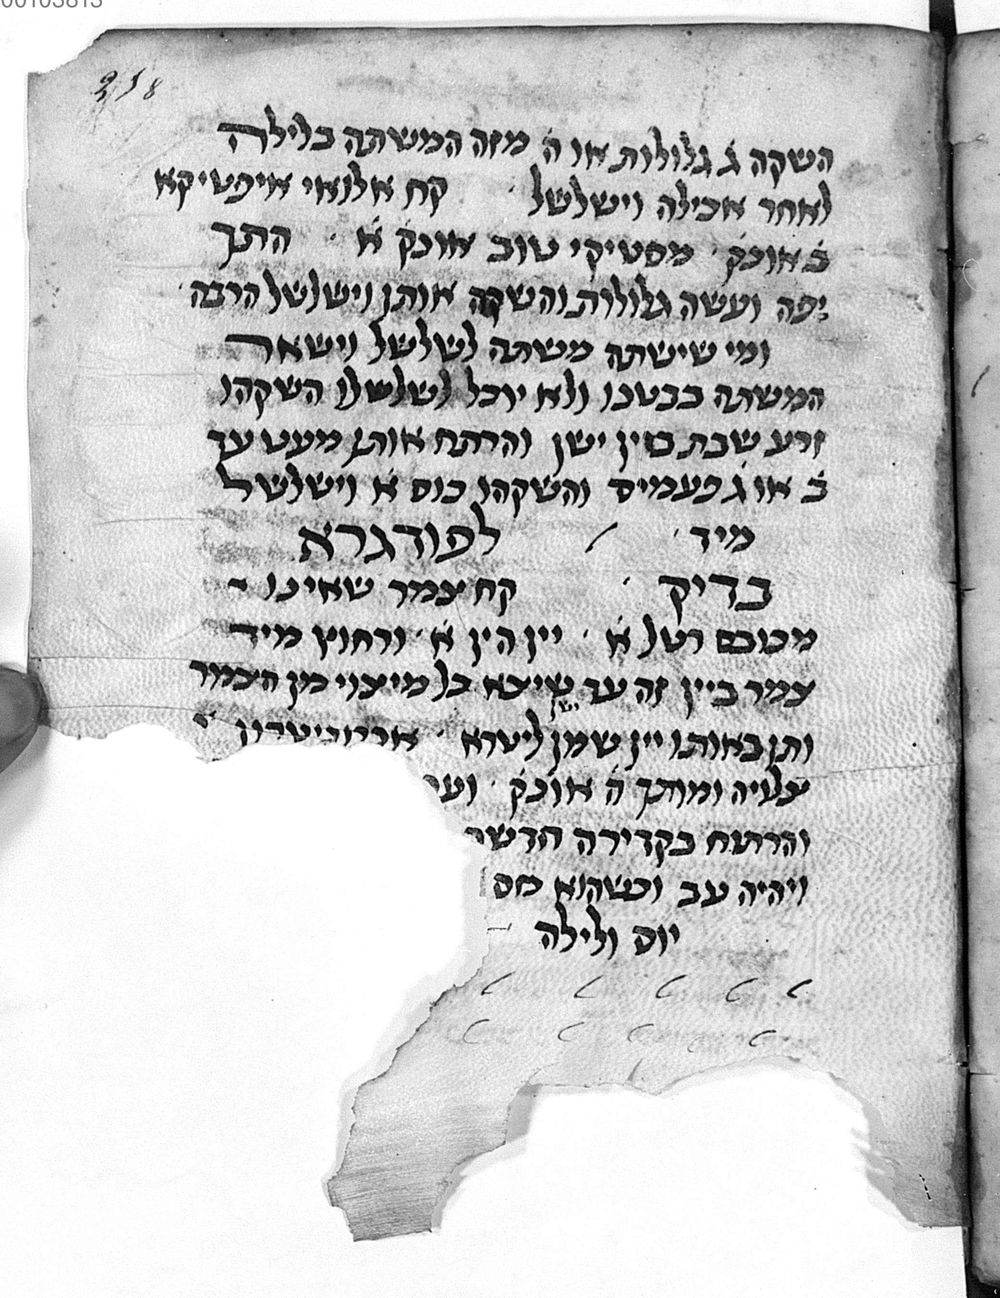 00103813
218
השקה ג̇ גלולות או ה̇ מזה המשתה בלילה
לאחר אכילה וישלשל קח אלואי איפטיקא
ב̇ אונק̇ מסטיקי טוב אונק̇ א̇ התך
יפה ועשה גלולות והשקה אותן וישלשל הרבה
ומי שישתה משתה לשלשל וישאר
המשתה בבטנו ולא יוכל לשלשלו השקהו
זרע שבת ביין ישן והרתח אותן מעט עד
ב̇ או ג̇ פעמים והשקהו כוס א̇ וישלשל
מיד לפודגרא
בדיק קח צמר שאינו
מכובס רטל א̇ יין הין א̇ ורחוץ מיד
צמר ביין זה עד שיצא כל מיצוי מן הצמר
ותן באותו יין שמן ישן ליטרא
עלויה ומותך ה̇ אונק̇
והרתיח בקדירה חדשה
ויהיה עב וכשהוא חם
יום ולילה